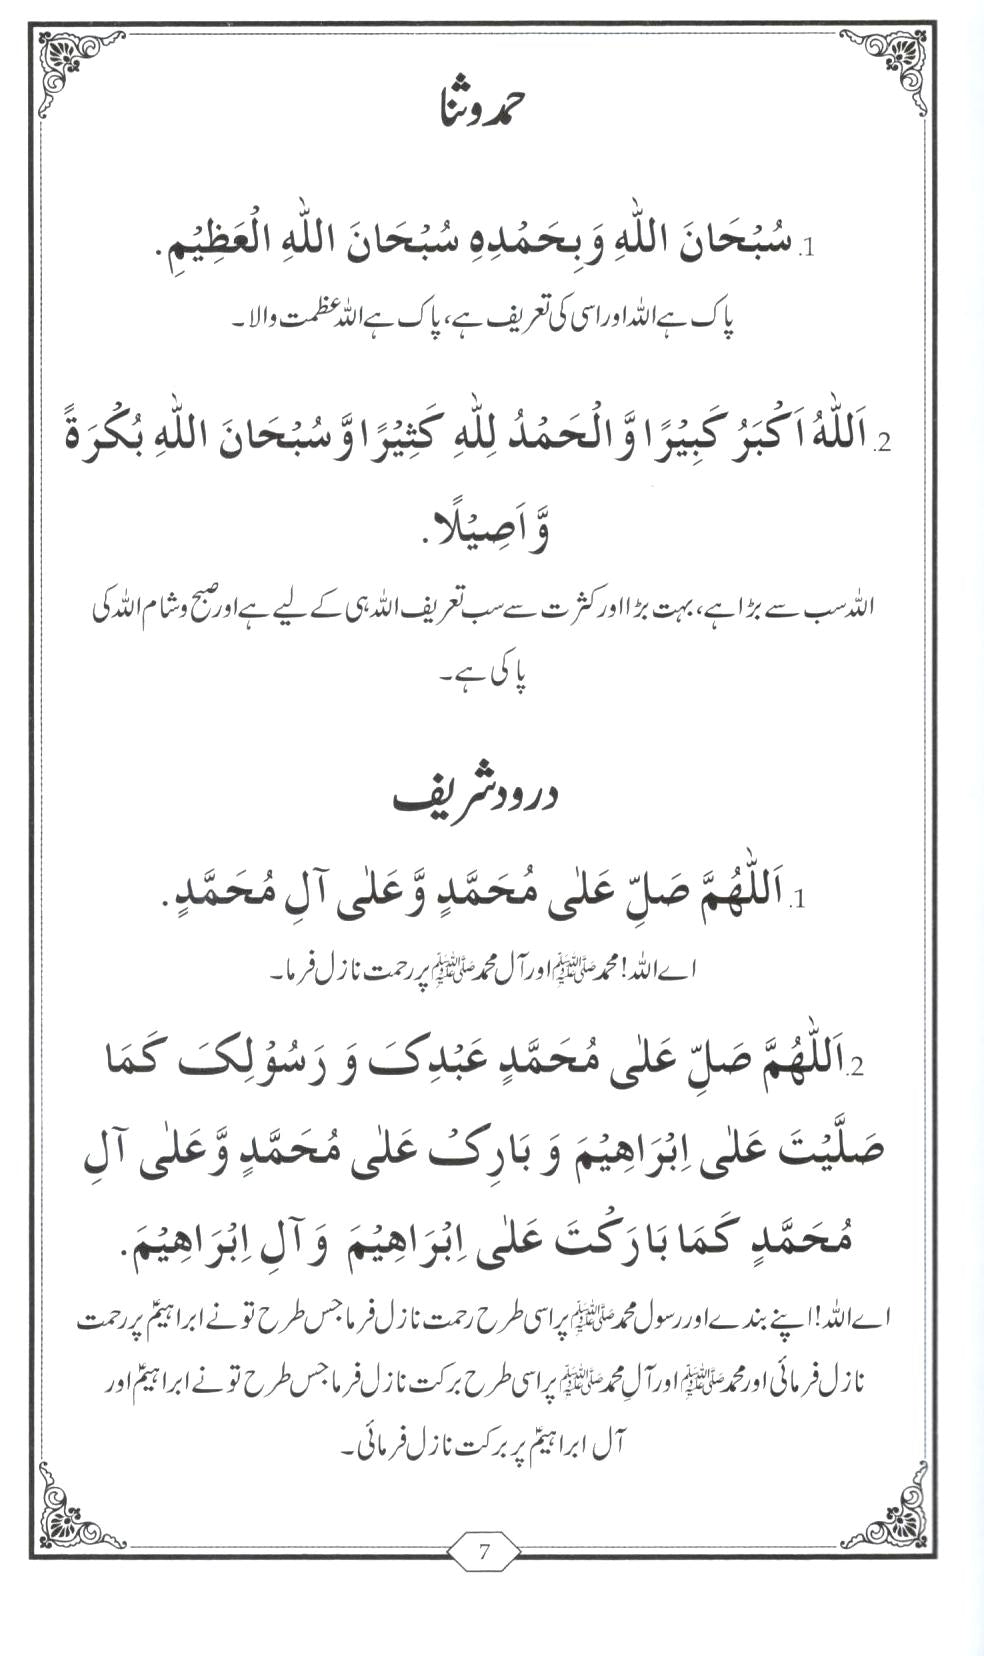 حمد و ثنا
1. سُبْحَانَ اللّٰهِ وَ بِحَمْدِهٖ سُبْحَانَ اللّٰهِ الْعَظِيْمِ.
پاک ہے اللہ اور اسی کی تعریف ہے، پاک ہے اللہ عظمت والا۔
2. اَللّٰهُ اَكْبَرُ كَبِيْرًا وَّ الْحَمْدُ لِلّٰهِ كَثِيْرًا وَّ سُبْحَانَ اللّٰهِ بُكْرَةً
وَّ اَصِيْلًا.
اللہ سب سے بڑا ہے، بہت بڑا اور کثرت سے سب تعریف اللہ ہی کے لیے ہے اور صبح و شام اللہ کی
پاکی ہے۔
درود شریف
1. اَللّٰهُمَّ صَلِّ عَلٰى مُحَمَّدٍ وَّ عَلٰى آلِ مُحَمَّدٍ.
اے اللہ! محمد ﷺ اور آل محمد ﷺ پر رحمت نازل فرما۔
2. اَللّٰهُمَّ صَلِّ عَلٰى مُحَمَّدٍ عَبْدِكَ وَ رَسُوْلِكَ كَمَا
صَلَّيْتَ عَلٰى اِبْرَاهِيْمَ وَ بَارِكْ عَلٰى مُحَمَّدٍ وَّ عَلٰى آلِ
مُحَمَّدٍ كَمَا بَارَكْتَ عَلٰى اِبْرَاهِيْمَ وَ آلِ اِبْرَاهِيْمَ.
اے اللہ! اپنے بندے اور رسول محمد ﷺ پر اسی طرح رحمت نازل فرما جس طرح تو نے ابراہیمؑ پر رحمت
نازل فرمائی اور محمد ﷺ اور آلِ محمد ﷺ پر اسی طرح برکت نازل فرما جس طرح تو نے ابراہیمؑ اور
آل ابراہیمؑ پر برکت نازل فرمائی۔
7